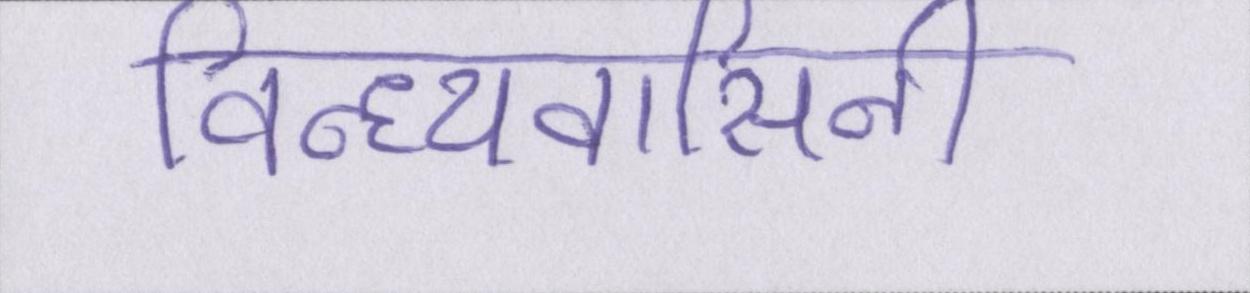 विन्ध्यवासिनी